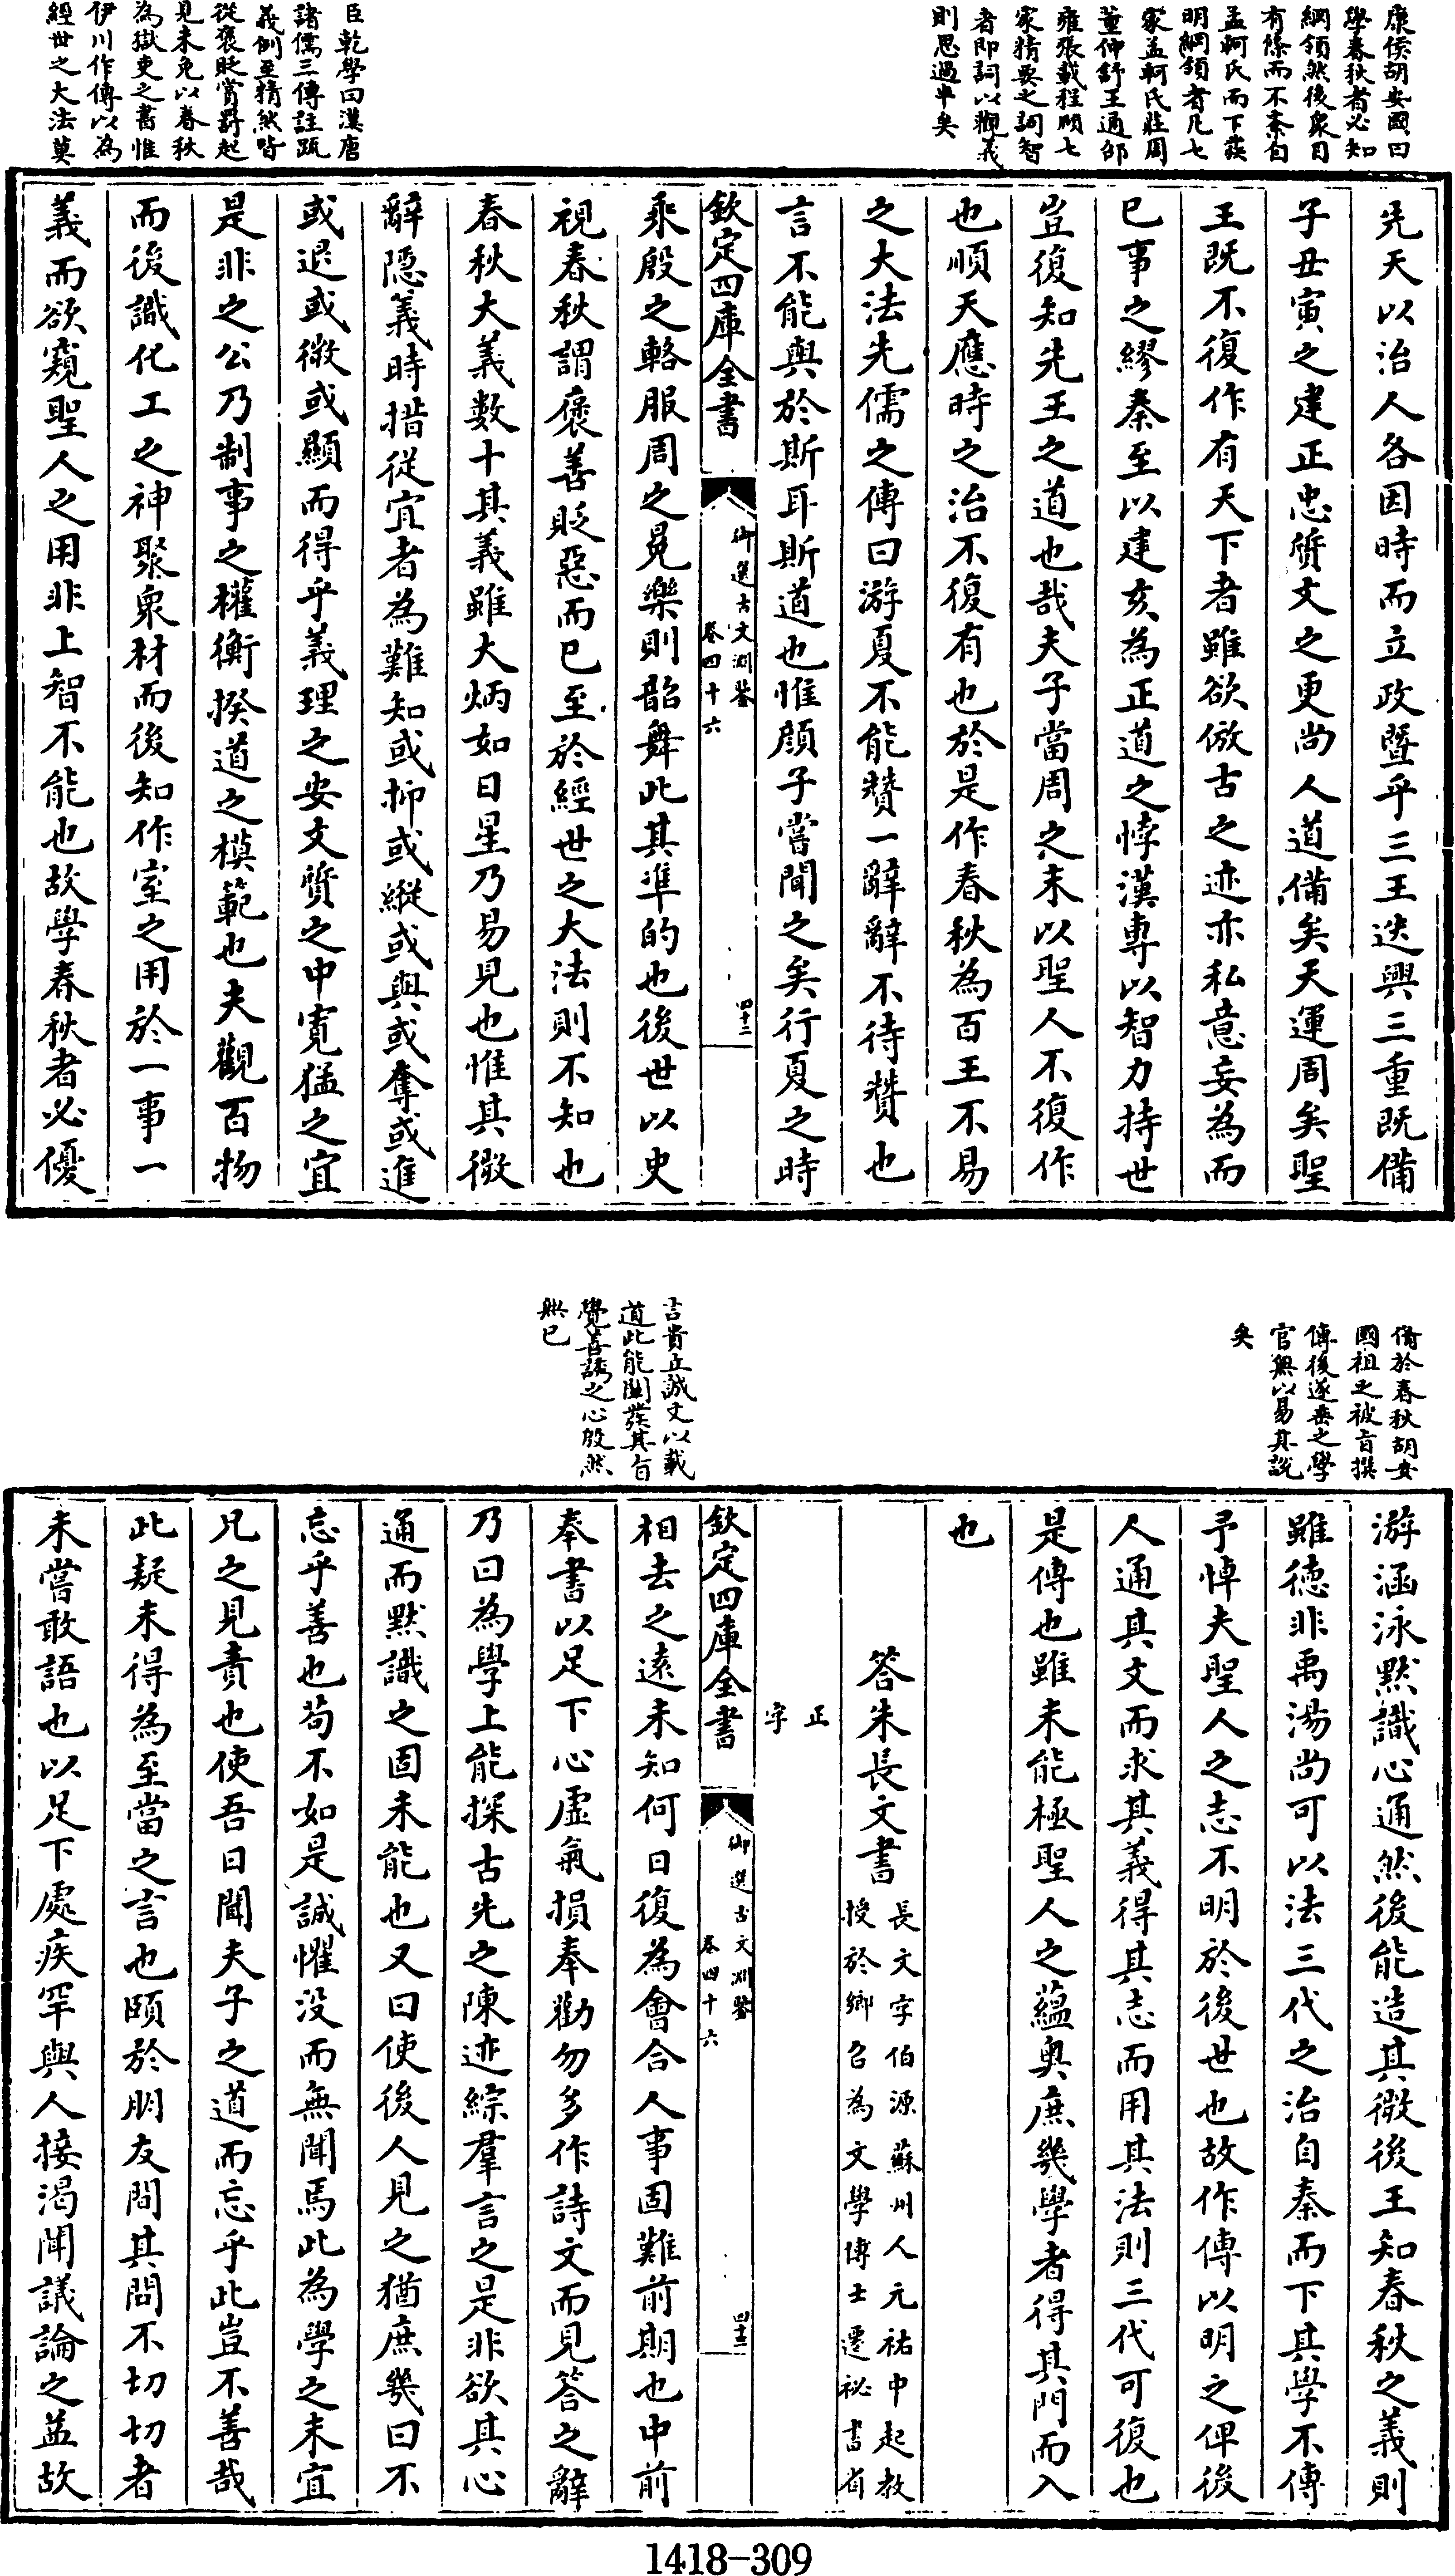 康侯胡安國曰
學春秋者必知
綱領然後衆目
有條而不紊自
孟軻氏而下發
明綱領者凡七
家孟軻氏莊周
董仲舒王通邵
雍張載程頤七
家精要之詞智
者即詞以觀義
則思過半矣
臣乾學曰漢唐
諸儒三傳註疏
義例至精然皆
從褒貶賞罰起
見未免以春秋
為獄吏之書惟
伊川作傳以為
經世之大法莫
先天以治人各因時而立政曁乎三王迭興三重既備
子丑寅之建正忠質文之更尚人道備矣天運周矣聖
王既不復作有天下者雖欲倣古之迹亦私意妄為而
已事之繆秦至以建亥為正道之悖漢專以智力持世
豈復知先王之道也哉夫子當周之末以聖人不復作
也順天應時之治不復有也於是作春秋為百王不易
之大法先儒之傳曰游夏不能贊一辭辭不待贊也
言不能與於斯耳斯道也惟顔子嘗聞之矣行夏之時
欽定四庫全書
御選古文淵鑒
卷四十六
四十二
乘殷之輅服周之冕樂則韶舞此其準的也後世以史
視春秋謂褒善貶惡而已至於經世之大法則不知也
春秋大義數十其義雖大炳如日星乃易見也惟其微
辭隱義時措從宜者為難知或抑或縱或與或奪或進
或退或微或顯而得乎義理之安文質之中寛猛之宜
是非之公乃制事之權衡揆道之模範也夫觀百物
而後識化工之神聚衆材而後知作室之用於一事一
義而欲窺聖人之用非上智不能也故學春秋者必優
備於春秋胡安
國祖之被旨撰
傳後遂垂之學
官無以易其說
矣
言貴立誠文以載
道此能闡發其旨
覺善誘之心殷然
無已
游涵泳黙識心通然後能造其微後王知春秋之義則
雖徳非禹湯尚可以法三代之治自秦而下其學不傳
予悼夫聖人之志不明於後世也故作傳以明之俾後
人通其文而求其義得其志而用其法則三代可復也
是傳也雖未能極聖人之藴奥庶幾學者得其門而入
也
答朱長文書
長文字伯源蘇州人元祐中起教
授於鄉召為文學博士遷祕書省
正
字
欽定四庫全書
御選古文淵鑒
卷四十六
四十三
相去之遠未知何日復為會合人事固難前期也中前
奉書以足下心虛氣損奉勸勿多作詩文而見答之辭
乃曰為學上能探古先之陳迹綜羣言之是非欲其心
通而黙識之固未能也又曰使後人見之猶庶幾曰不
忘乎善也苟不如是誠懼没而無聞焉此為學之末宜
兄之見責也使吾日聞夫子之道而忘乎此豈不善哉
此疑未得為至當之言也頤於朋友間其問不切切者
未嘗敢語也以足下處疾罕與人接渴聞議論之益故
1418-309